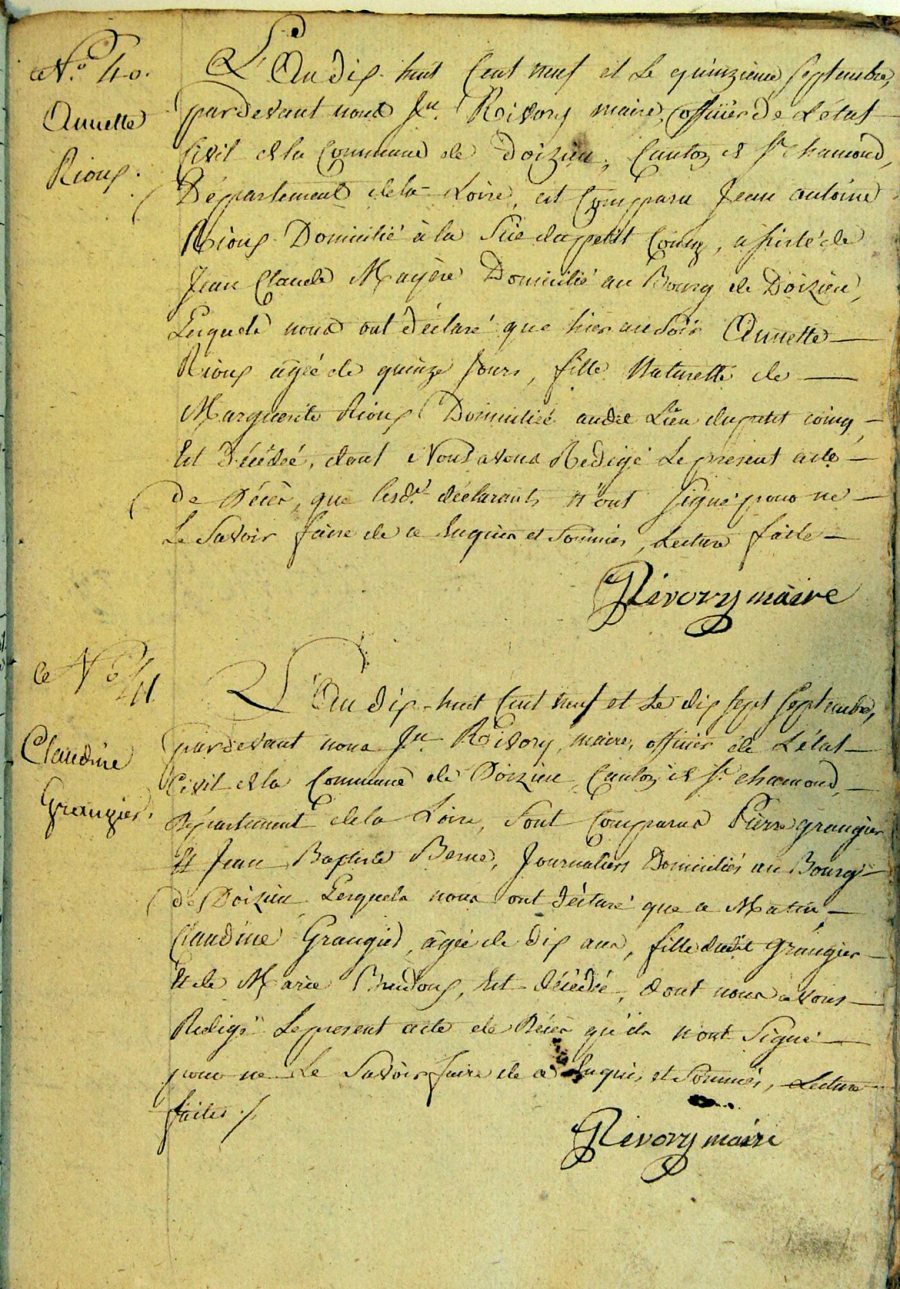 N.º 40.
Annette
Rioux.
L'An dix huit Cent neuf et Le quinzieme septembre,
pardevant nous Jn. Rivory maire, officier de L'état
Civil de la Commune de Doizieu, Canton de St. chamond,
Département de la Loire, est Comparu Jean antoine
Rioux Domicilié à la du petit Coing, assisté de
Jean Claude Mayère Domicilié au Bourg de Doizieu,
Lesquels nous ont déclaré que hier au soir Annette
Rioux âgée de quinze Jours, fille Naturelle de
Marguerite Rioux Domiciliée audit Lieu du petit coing,
Est Décédée, dont Nous avons Redigé Le present acte
de Décès, que lesdts. déclarants n'ont Signé pour ne
Le Savoir faire de ce Enquis et Sommés, Lecture faite
Rivory maire
N.º 41
Claudine
Grangier.
L'An dix-huit Cent neuf et Le dix sept septembre,
pardevant nous Jn. Rivory, maire, officier de L'état
Civil de la Commune de Doizieu, Canton de St. chamond,
Département de la Loire, Sont Comparus Pierre grangier
et Jean Baptiste Berne, Journaliers Domiciliés au Bourg
de Doizieu Lesquels nous ont déclaré que ce Matin,
Claudine Grangier, âgée de dix ans, fille dudit Grangier
et de Marie, Est décédée, dont nous avons
Redigé Le present acte de Décès qu'ils n'ont Signé
pour ne Le Savoir faire de ce Enquis et Sommés, Lecture
faite ./
Rivory maire